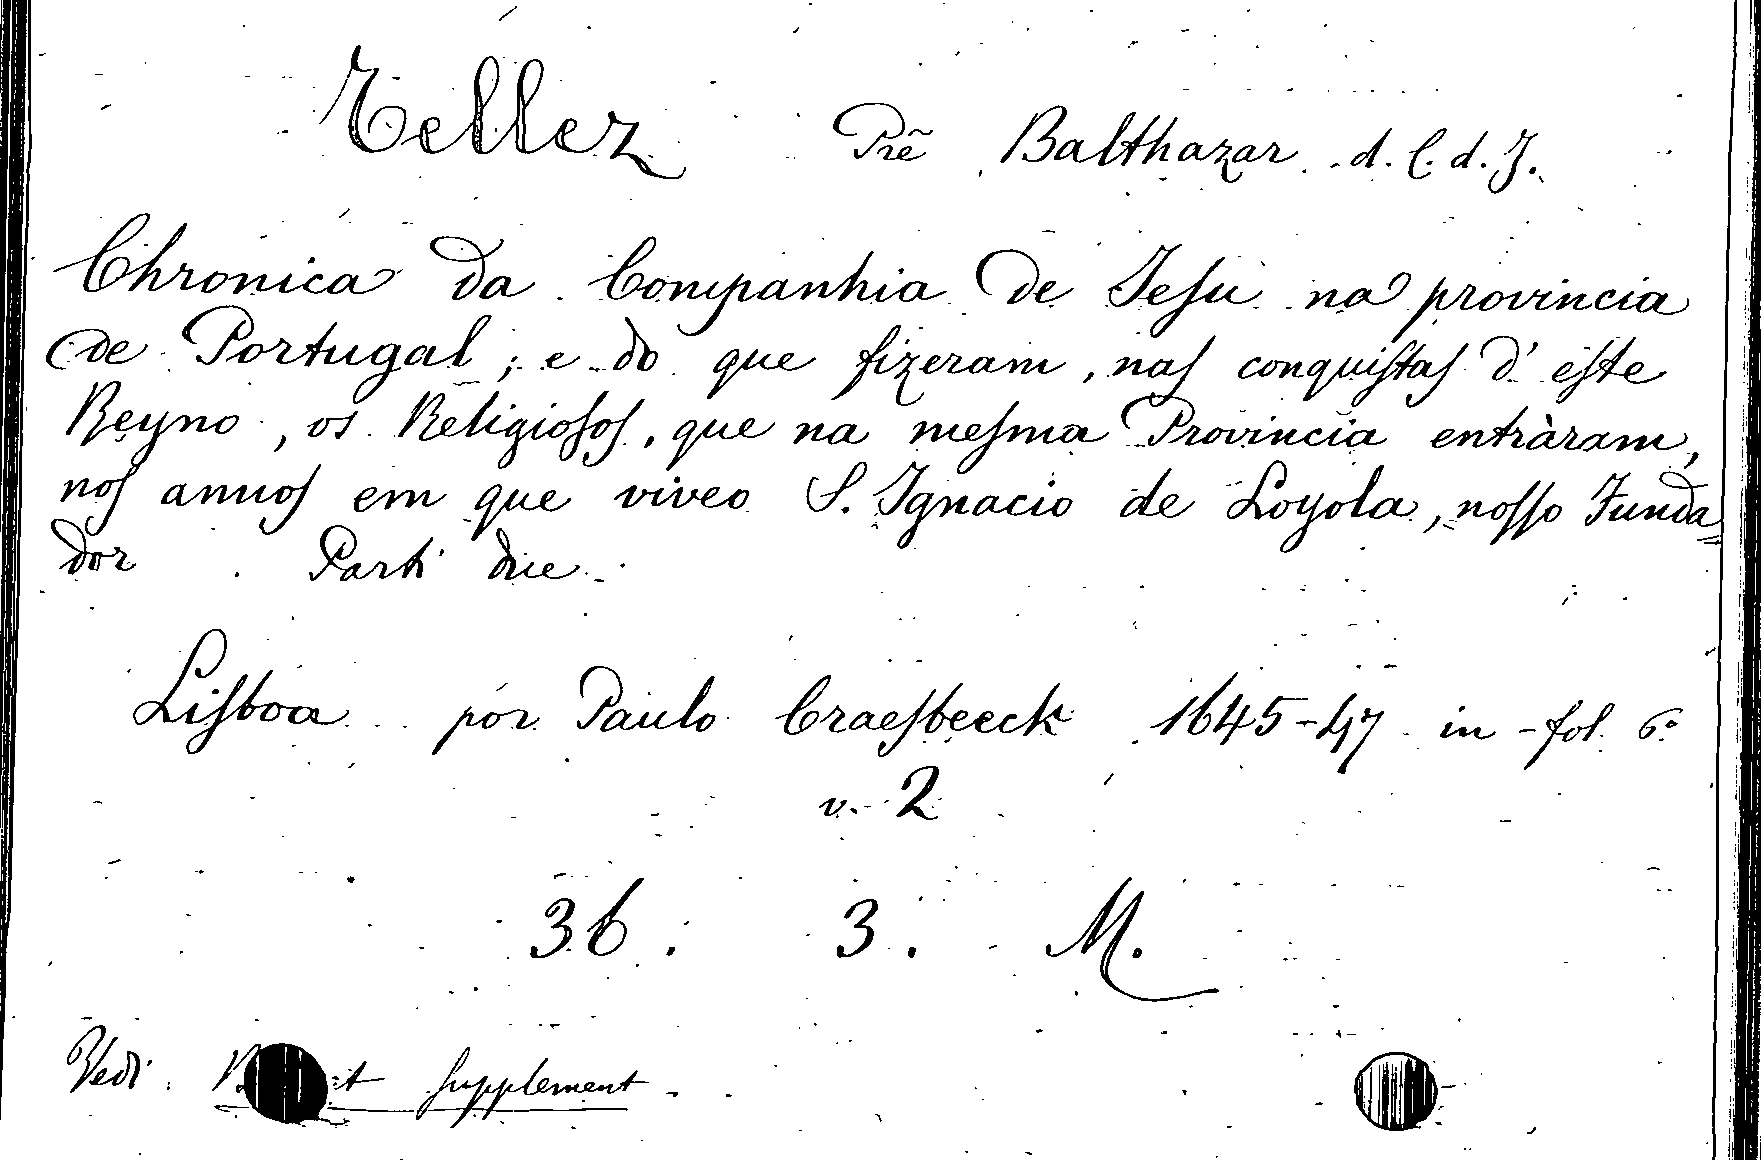 Tellez Prẽ Balthazar d. C. d. J.
Chronica da Companhia de Jeſu na provincia
de Portugal; e do que fizeram, naſ conquiſtaſ d'eſte
Reyno, os Religioſoſ, que na meſma Provincia entràram,
noſ annoſ em que viveo S. Ignacio de Loyola, noſſo Funda
dor Parti due
Liſboa por Paulo Craeſbeeck 1645-47 in-fol.
v. 2
36. 3. M.
Vedi Supplement